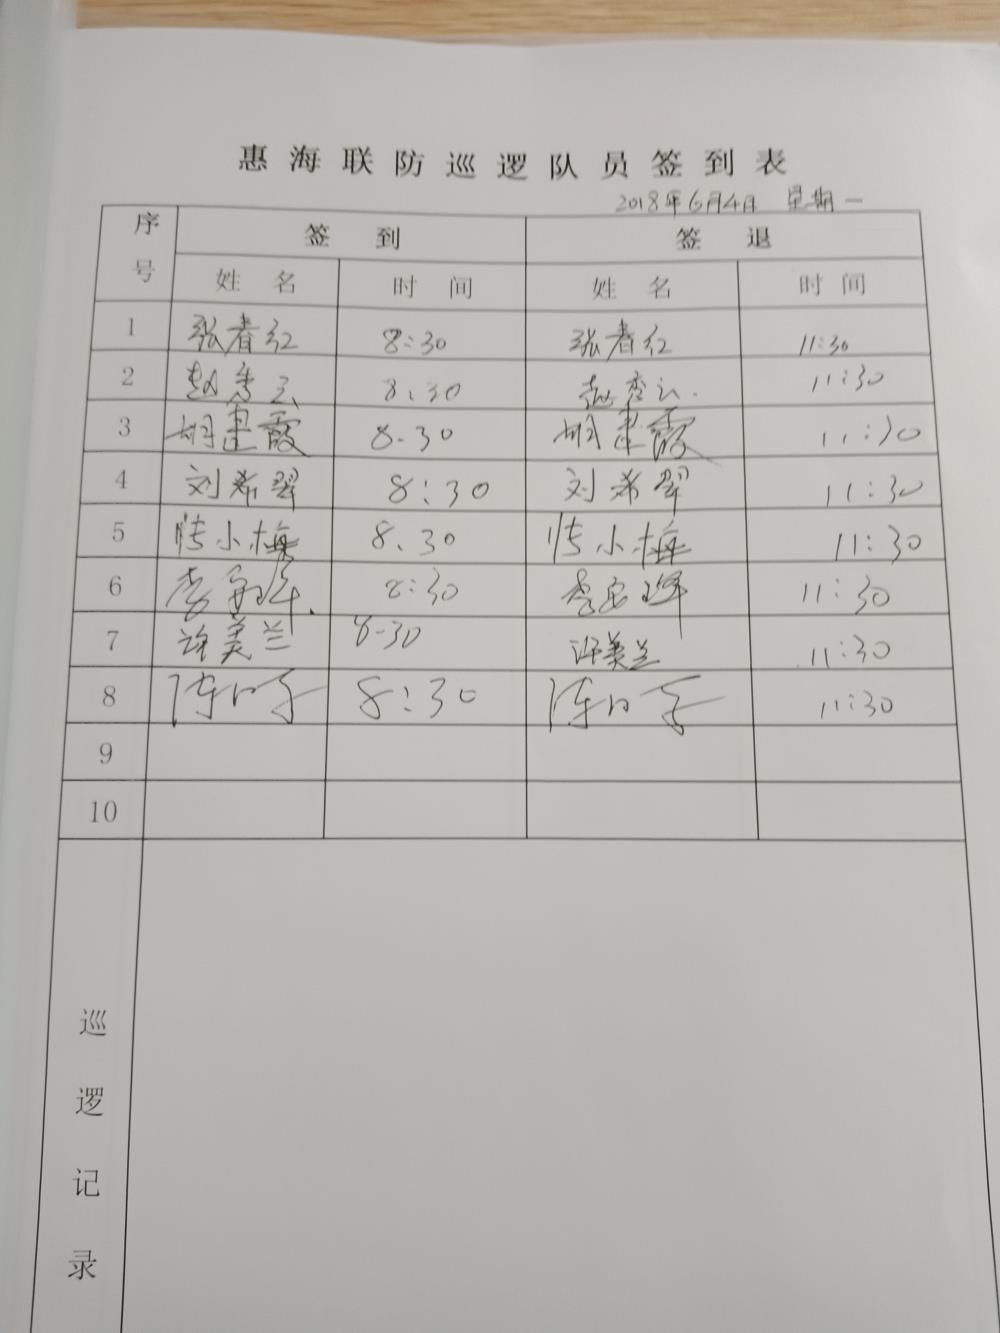 惠海联防巡逻队员签到表
2018年6月4日 星期一
序号 签到 签退
姓名 时间 姓名 时间
1 张春红 8:30 张春红 11:30
2 赵秀云 8.30 赵秀云. 11:30
3 胡建霞 8-30 胡建霞 11:30
4 刘希翠 8:30 刘希翠 11:30
5 张小梅 8.30 张小梅 11:30
6 李 8:30 李 11:30
7 许美兰 8-30 许美兰 11:30
8 陈 8:30 陈 11:30
9
10
巡逻记录